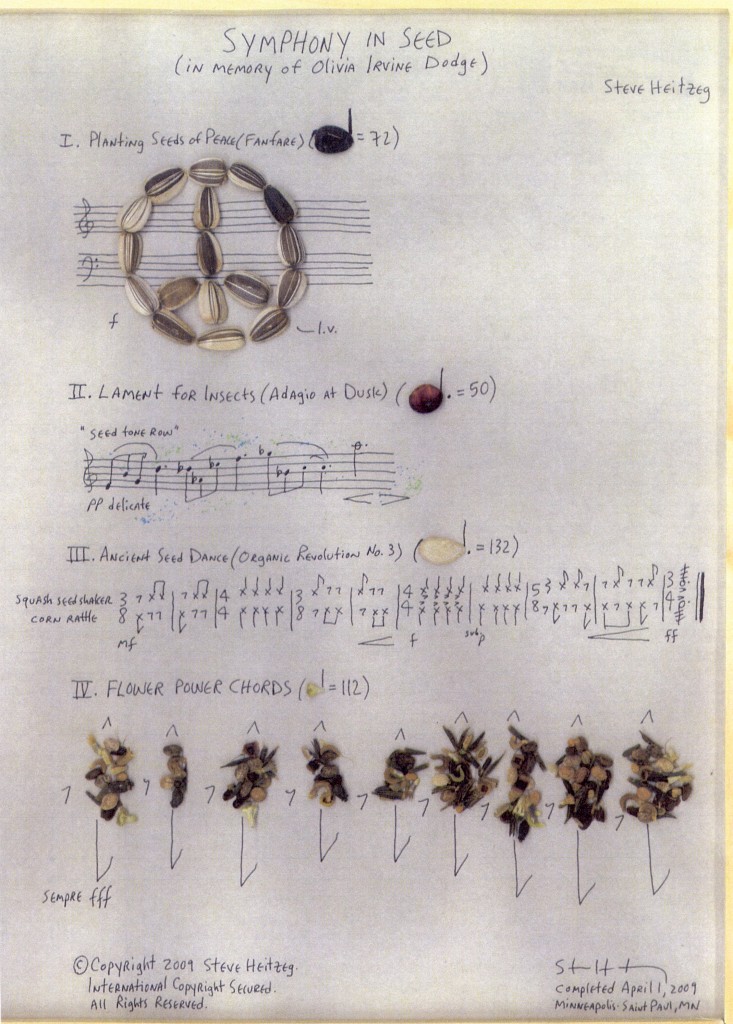 SYMPHONY IN SEED
(IN MEMORY OF OLIVIA IRVINE DODGE)
STEVE HEITZEG
I. PLANTING SEEDS OF PEACE (FANFARE) ( = 72)
f
l.v.
II. LAMENT FOR INSECTS (ADAGIO AT DUSK) ( . = 50)
"SEED TONE ROW"
pp delicate
III. ANCIENT SEED DANCE (ORGANIC REVOLUTION NO. 3) ( . = 132)
SQUASH SEED SHAKER
CORN RATTLE
3 4 3 4 5 3
8 4 8 4 8 4
mf f sub p ff
IV. FLOWER POWER CHORDS ( = 112)
SEMPRE fff
© COPYRIGHT 2009 STEVE HEITZEG.
INTERNATIONAL COPYRIGHT SECURED.
ALL RIGHTS RESERVED.
COMPLETED APRIL 1, 2009
MINNEAPOLIS-SAINT PAUL, MN